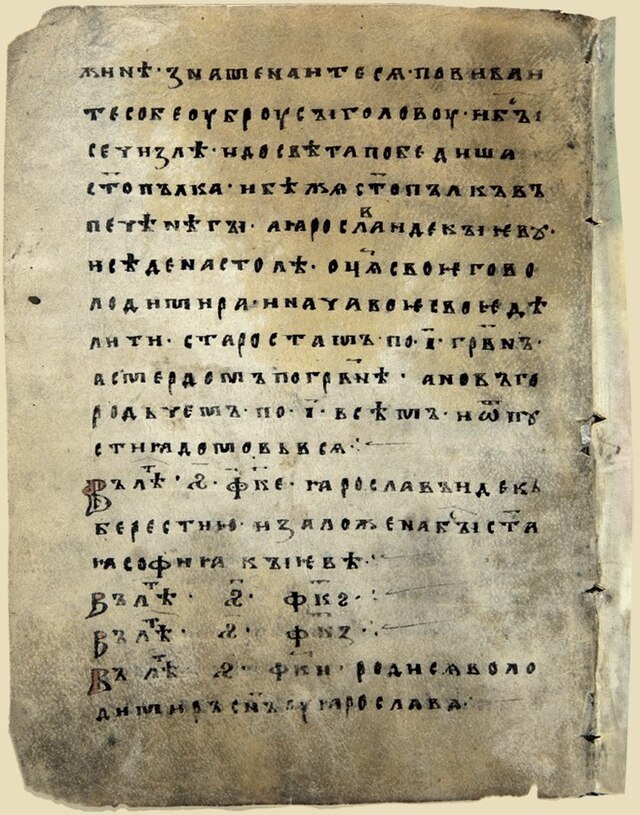 жинѣ · знаменаитесѧ · повиваи
тесобеоуброусꙑголовоу · ибꙑ
сечизлѣ · идосвѣтапобѣдиша
ст҃опълка · ибѣжѧст҃опълкъвъ
печѣнѣгꙑ · аꙗрослⷡаидекꙑѥвꙋ ·
исѣденастолѣ · оц҃ѧсвоѥгово
лодимира · иначавоѥсвоѥдѣ
лити · старостамъ · по · і҃ · грв҃нъ ·
асмердомъпогрв҃нѣ · ановъго
родьчемъ · по · і҃ · всѣмъ · иѿпу
стиꙗдомовьвсѧ ·
Вълⷮѣ · ҂ѕ҃ · ф҃ке · ꙗрославъидекъ
берестию · изаложенабꙑст҃а
ꙗсофиꙗкꙑѥвѣ ·
Вълⷮѣ · ҂ѕ҃ · фк҃ѕ ·
Вълⷮѣ · ҂ѕ҃ · фк҃з ·
Вълⷮѣ · ҂ѕ҃ · фк҃и · родисѧволо
димиръсн҃ъоуꙗрослава ·